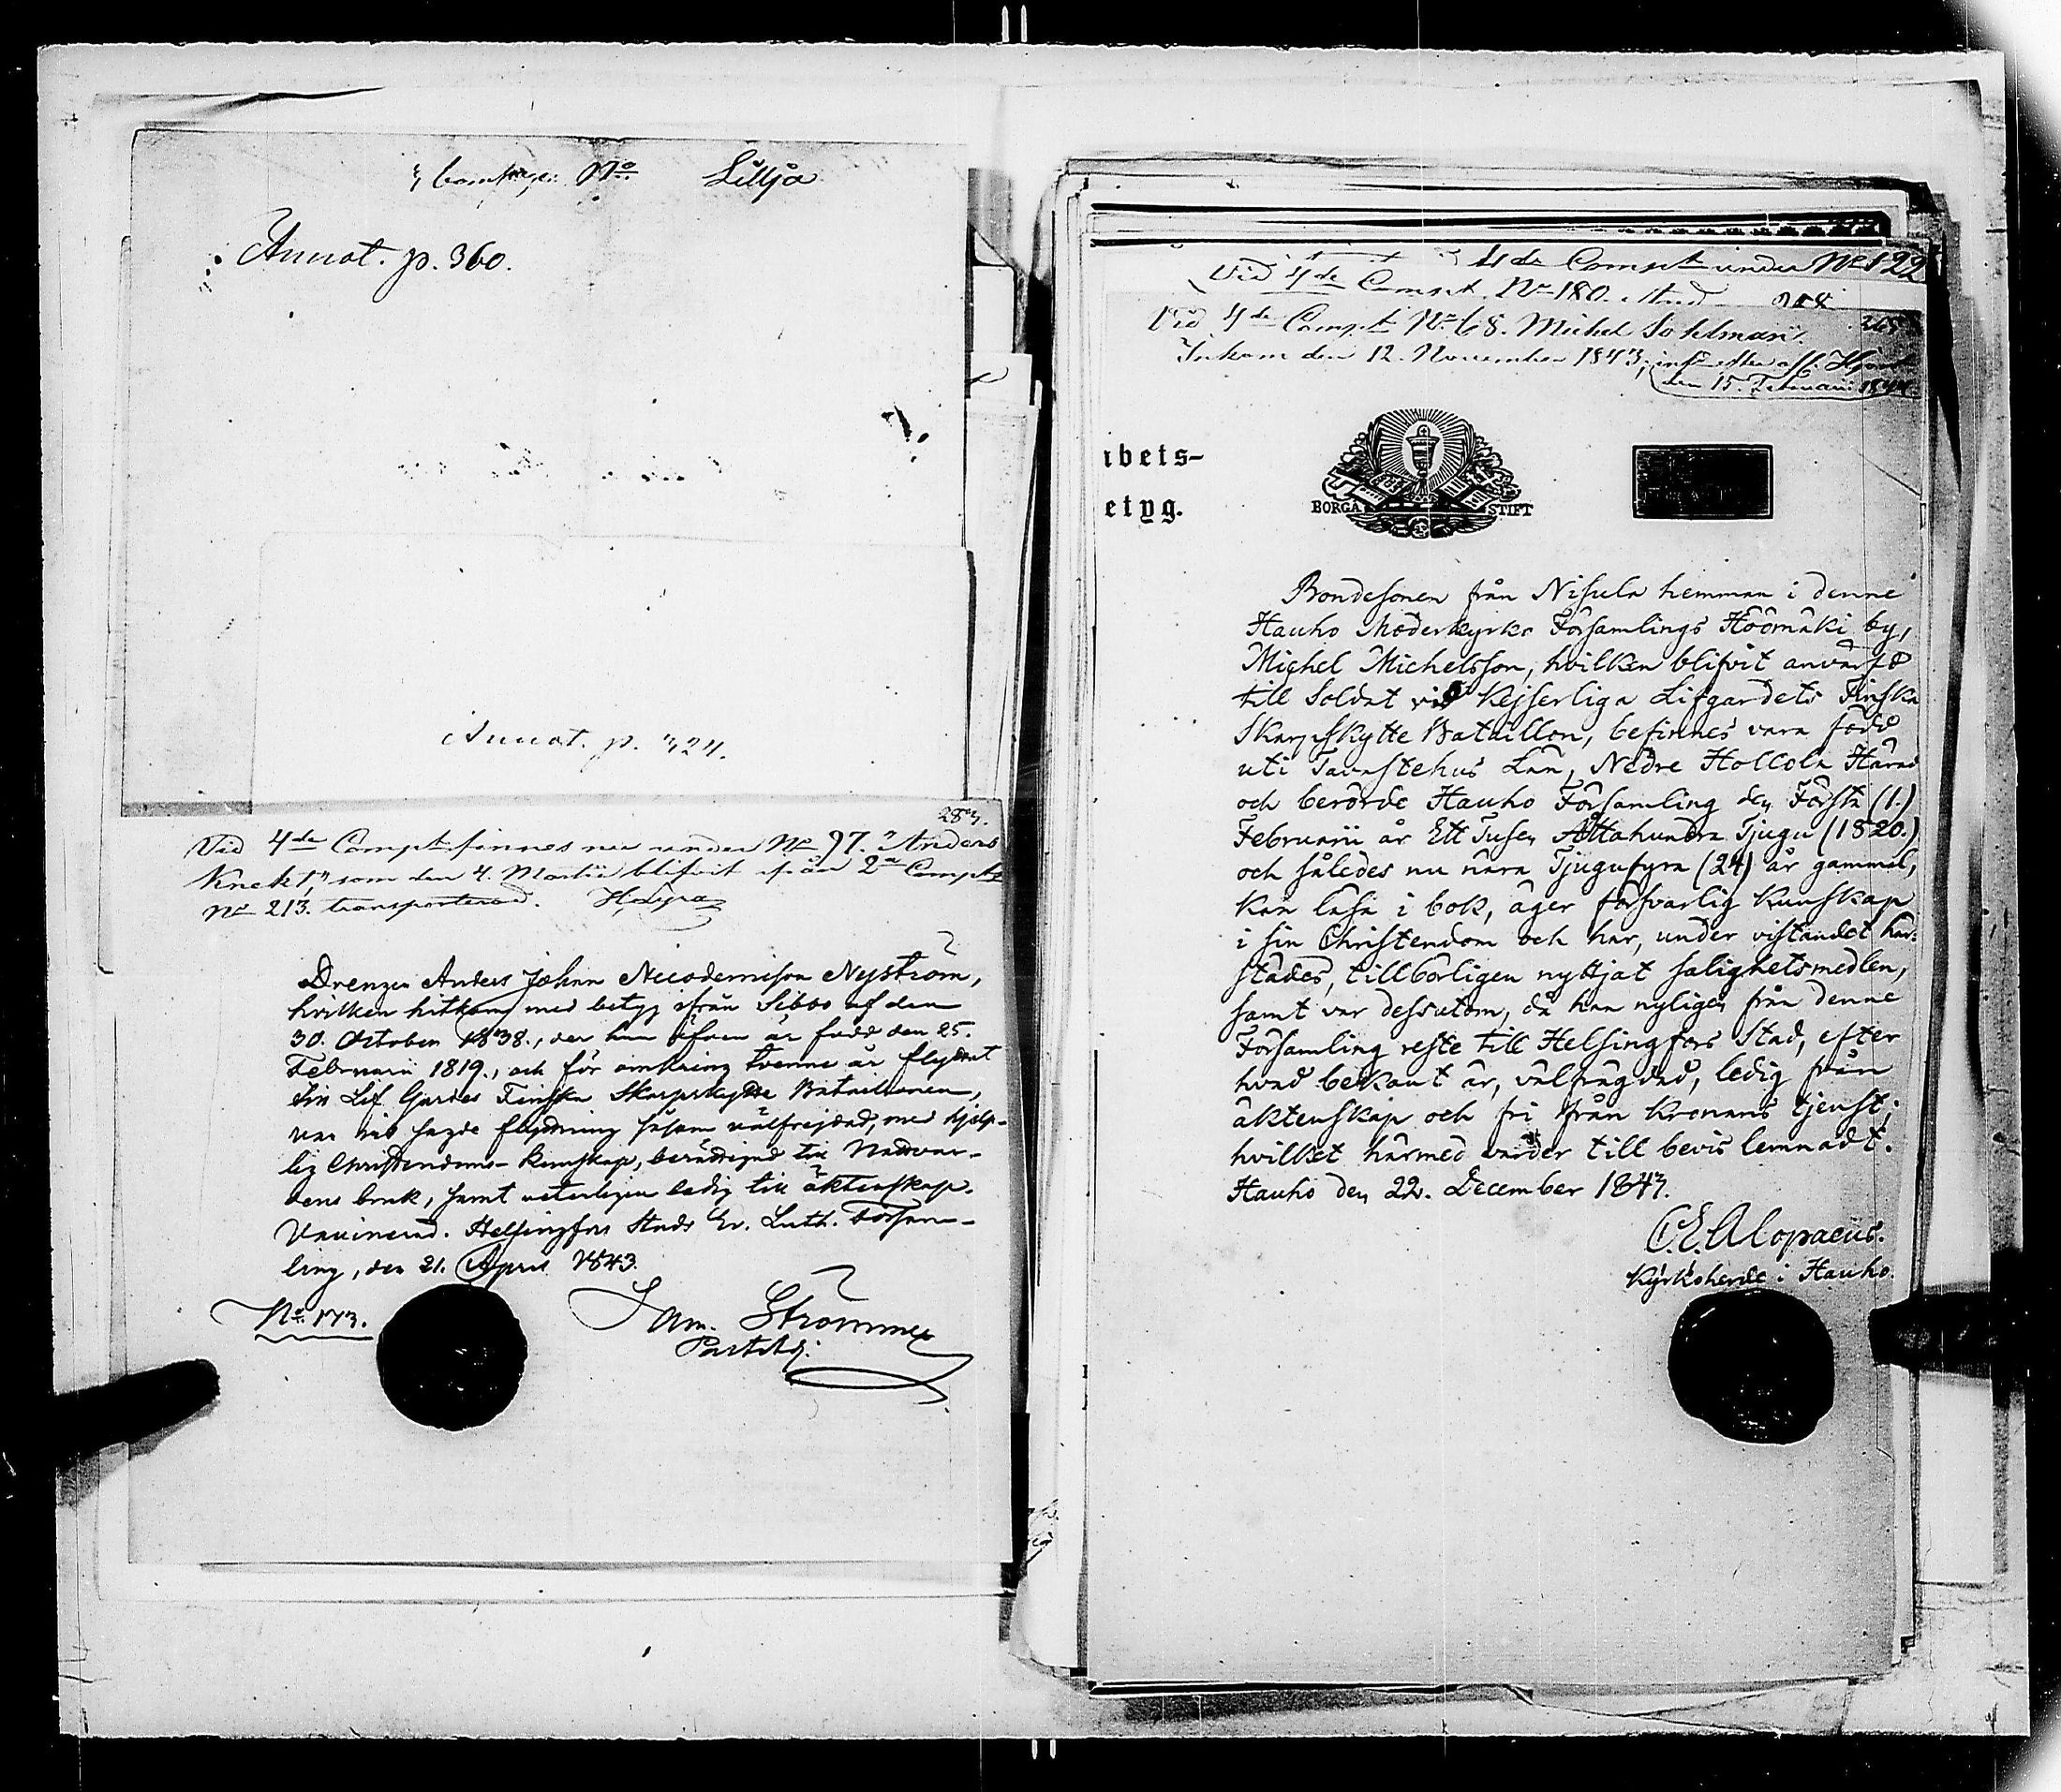 Compagn: No Lillja
Annot. p. 360.
Annot. p. 324.
283.
Vid 4de Compt finnes nu under No 97. Anders
Knekt, som den 4. Martii blifvit ifrån 2a Compts
No 213. transporterad.
Drengen Anders Johan Nicodemison Nyström,
hvilken hitkom med betyg ifrån Sibbo af den
30. October 1838., der han äfven är född den 25.
Februarii 1819., och för omkring tvenne år flyttat
till Lif Gardes Finska Skarpskytte Bataillonen,
var vid sagde flyttning såsom välfrejdad, med hjelp-
lig Christendoms-kunskap, berättigad till Nattvar-
dens bruk, samt veterligen ledig till äktenskap.
Vaccinerad. Helsingfors Stads Ev. Luth. Försam-
ling, den 21. April 1843.
No 173.
Sam. Strömmer
4de Compt under No 122
Vid 4de Compt. No 180.
Vid 4de Compt No 68. Michel Sohlman
Inkom den 12. November 1843;
den 15. Februarii 1844.
ibets-
etyg.
BORGÅ STIFT
Bondesonen från Nisula hemman i denne
Hauho Moderkyrko Församlings Hoomäki by,
Michel Michelsson, hvilken blifvit anvärfd
till Soldat vid Kejserliga Lifgardets Finska
Skarpskytte Bataillon, befinnes vara född
uti Tavastehus Län, Nedre Hollola Härad
och berörde Hauho Församling den Första (1.)
Februarii år Ett Tusen Åttahundra Tjugu (1820.)
och således nu nära Tjugufyra (24) år gammal,
kan läsa i bok, äger försvarlig kunskap
i sin Christendom och har, under vistandet här-
städes, tillbörligen nyttjat salighetsmedlen,
samt var dessutom, då han nyligen från denne
Församling reste till Helsingfors Stad, efter
hvad bekant är, välfrägdad, ledig från
äktenskap och fri från Kronans tjenst;
hvilket härmed varder till bevis lemnadt.
Hauho den 22. December 1843.
C. E. Alopaeus.
Kyrkoherde i Hauho.